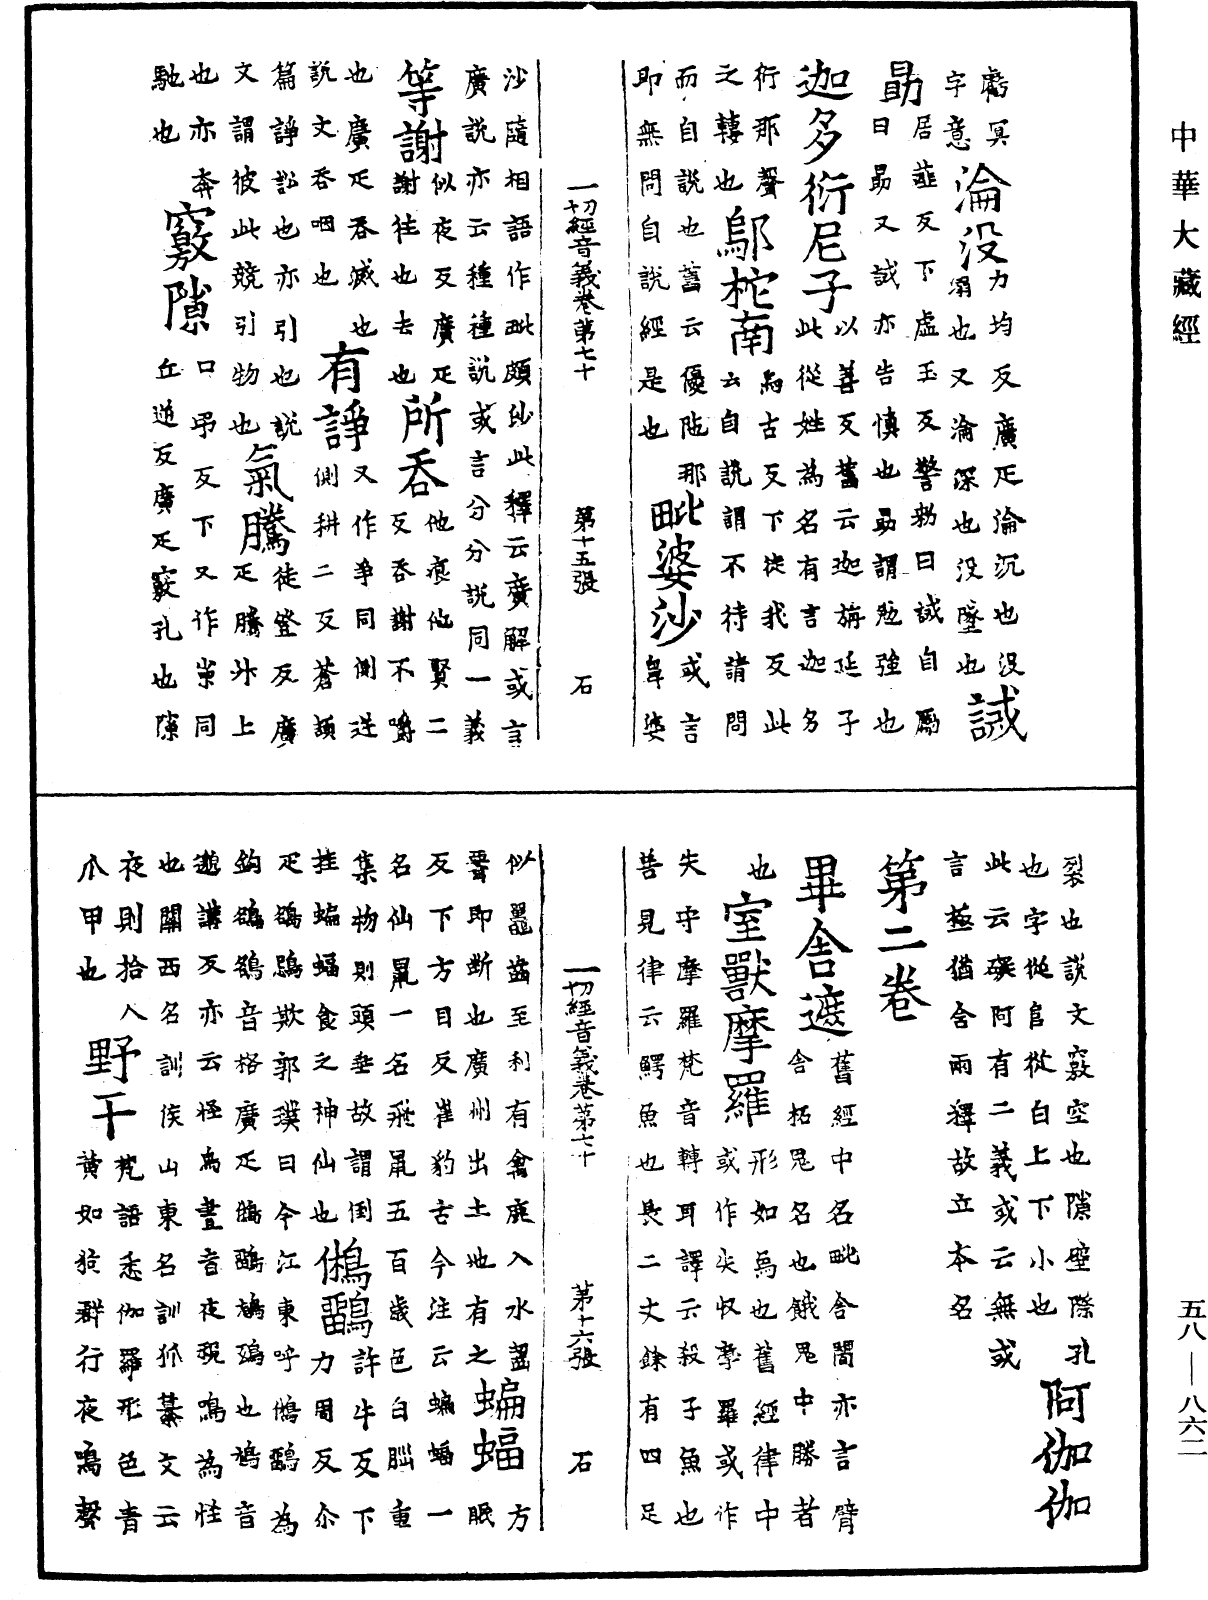 中華大藏經
虧冥
字意
淪没
力均反廣疋淪沉也没
溺也又淪深也没墜也
誡
勗
居薤反下虛玉反警勑曰誡自勵
曰勗又誡亦告慎也勗謂勉強也
迦多衍尼子
以善反舊云迦旃延子
此從姓為名有言迦多
衍那聲
之轉也
鄔柁南
烏古反下徒我反此
云自說謂不待請問
而自說也舊云優陁那
即無問自說經是也
毗婆沙
或言
鼻婆
一切經音義卷第七十 第十五張 石
沙隨相語作毗頗沙此釋云廣解或言
廣說亦云種種說或言分分說同一義
等謝
似夜反廣疋
謝往也去也
所吞
他痕他賢二
反吞謝不嚼
也廣疋吞滅也
說文吞咽也
有諍
又作爭同側迸
側耕二反蒼頡
篇諍訟也亦引也說
文謂彼此競引物也
氣騰
徒登反廣
疋騰升上
也亦奔
馳也
竅隙
口弔反下又作𡭴同
丘逆反廣疋竅孔也隙
裂也說文竅空也隙壁際孔
也字從𨸏從白上下小也
阿伽伽
此云礙阿有二義或云無或
言極猶含兩釋故立本名
第二卷
畢舍遮
舊經中名毗舍闍亦言臂
舍柘鬼名也餓鬼中勝者
也
室獸摩羅
形如鳥也舊經律中
或作失收摩羅或作
失守摩羅梵音轉耳譯云殺子魚也
善見律云鰐魚也長二丈餘有四足
一切經音義卷第七十 第十六張 石
似鼉齒至利有禽鹿入水齧
𦝫即斷也廣州出土地有之
蝙蝠
方
眠
反下方目反崔豹古今注云蝙蝠一
名仙鼠一名飛鼠五百歲色白腦重
集物則頭垂故謂倒
挂蝙蝠食之神仙也
鵂鶹
許牛反下
力周反尒
疋鵅鵋欺郭璞曰今江東呼鵂鶹為
鉤鵅鵅音格廣疋鵂鶹鳩鴟也鳩音
遒講反亦云怪鳥晝盲夜視鳴為怪
也關西名訓侯山東名訓狐纂文云
夜則拾人
爪甲也
野干
梵語悉伽羅形色青
黃如狗群行夜鳴聲
五八—八六二